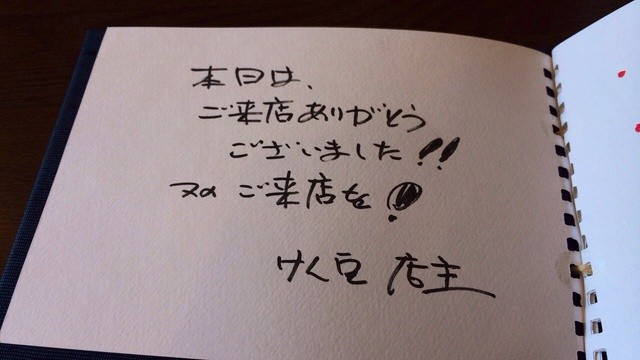 本日は、
ご来店ありがとう
ございました!!
又の ご来店を!
けん豆 店主